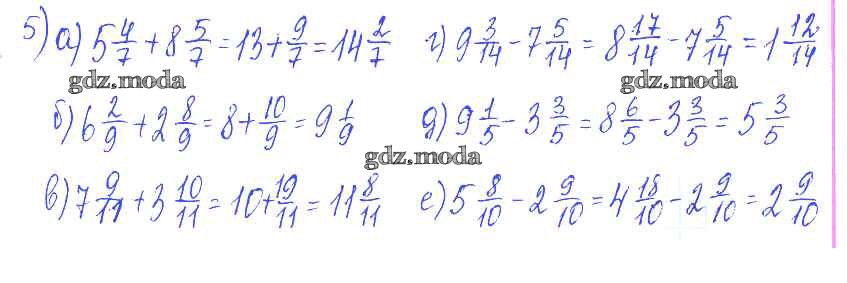 5) а) 5 4/7 + 8 5/7 = 13 + 9/7 = 14 2/7 г) 9 3/14 - 7 5/14 = 8 17/14 - 7 5/14 = 1 12/14
gdz.moda gdz.moda
б) 6 2/9 + 2 8/9 = 8 + 10/9 = 9 1/9 д) 9 1/5 - 3 3/5 = 8 6/5 - 3 3/5 = 5 3/5
gdz.moda
в) 7 9/11 + 3 10/11 = 10 + 19/11 = 11 8/11 е) 5 8/10 - 2 9/10 = 4 18/10 - 2 9/10 = 2 9/10